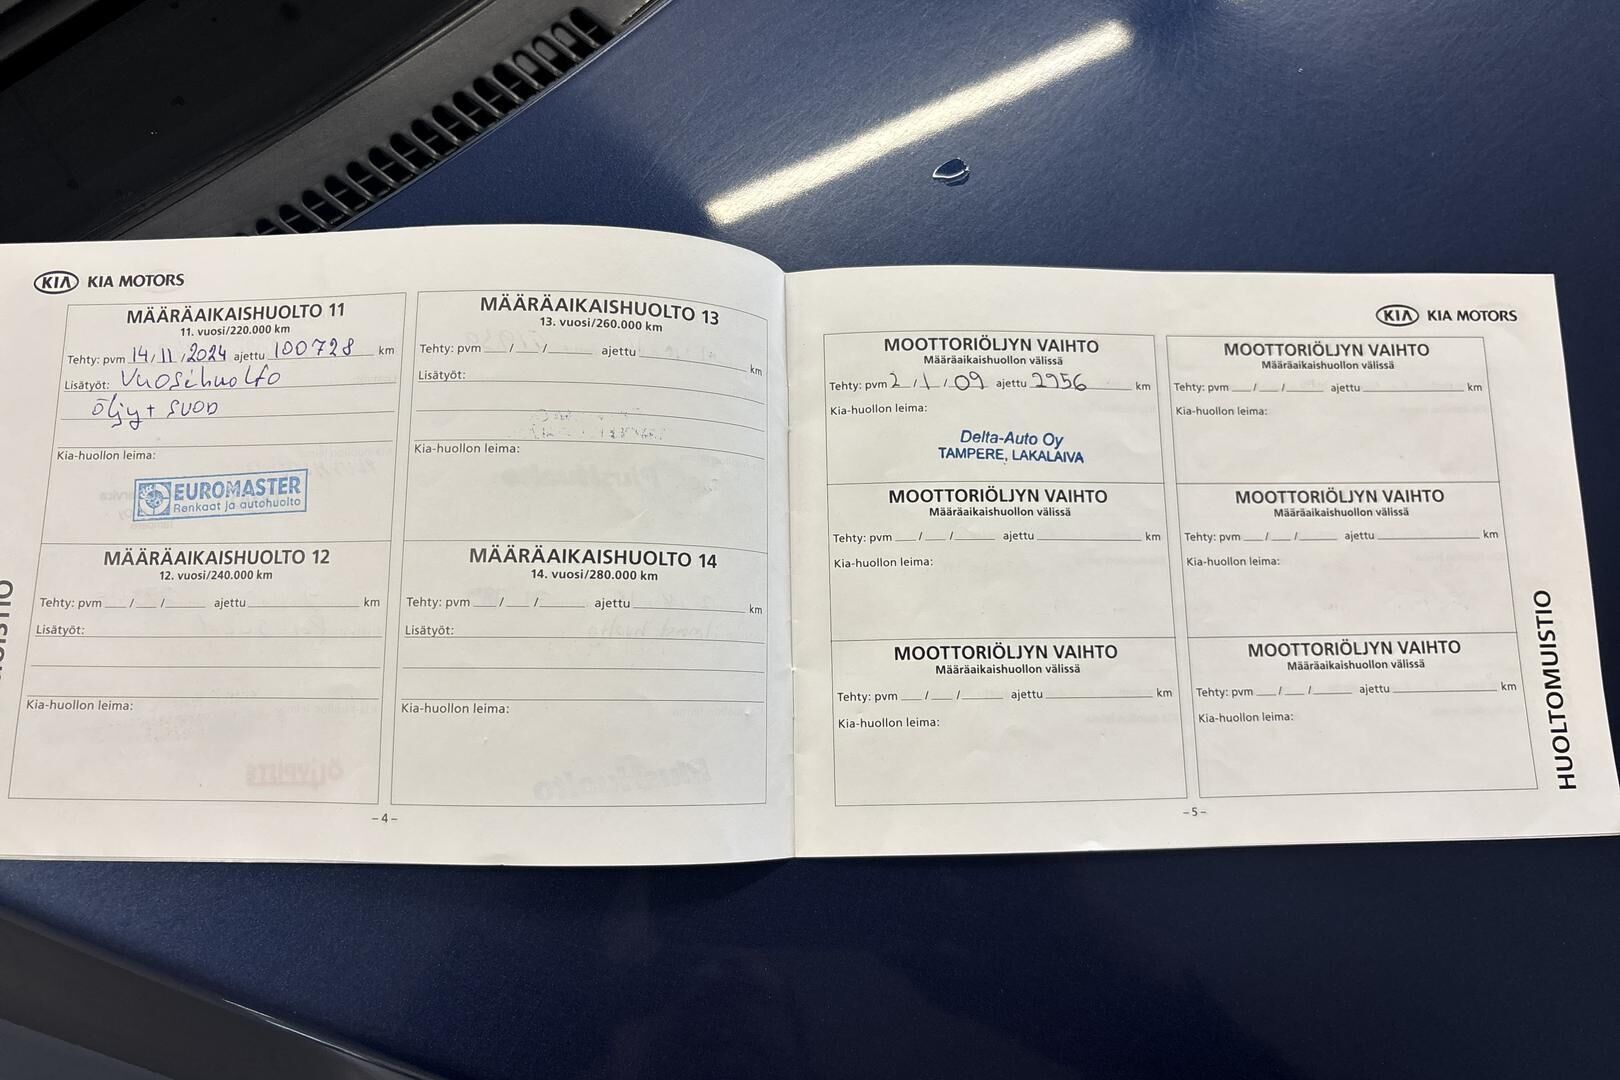 KIA KIA MOTORS
MÄÄRÄAIKAISHUOLTO 11
11. vuosi/220.000 km
Tehty: pvm 14/11/2024 ajettu 100728 km
Lisätyöt: Vuosihuolto
öljy + suod
Kia-huollon leima:
EUROMASTER
Renkaat ja autohuolto
MÄÄRÄAIKAISHUOLTO 12
12. vuosi/240.000 km
Tehty: pvm __/__/____ ajettu ____ km
Lisätyöt:
Kia-huollon leima:
MÄÄRÄAIKAISHUOLTO 13
13. vuosi/260.000 km
Tehty: pvm __/__/____ ajettu ____ km
Lisätyöt:
Kia-huollon leima:
MÄÄRÄAIKAISHUOLTO 14
14. vuosi/280.000 km
Tehty: pvm __/__/____ ajettu ____ km
Lisätyöt:
Kia-huollon leima:
–4–
KIA KIA MOTORS
MOOTTORIÖLJYN VAIHTO
Määräaikaishuollon välissä
Tehty: pvm 2/1/09 ajettu 2956 km
Kia-huollon leima:
Delta-Auto Oy
TAMPERE, LAKALAIVA
MOOTTORIÖLJYN VAIHTO
Määräaikaishuollon välissä
Tehty: pvm __/__/____ ajettu ____ km
Kia-huollon leima:
MOOTTORIÖLJYN VAIHTO
Määräaikaishuollon välissä
Tehty: pvm __/__/____ ajettu ____ km
Kia-huollon leima:
MOOTTORIÖLJYN VAIHTO
Määräaikaishuollon välissä
Tehty: pvm __/__/____ ajettu ____ km
Kia-huollon leima:
MOOTTORIÖLJYN VAIHTO
Määräaikaishuollon välissä
Tehty: pvm __/__/____ ajettu ____ km
Kia-huollon leima:
MOOTTORIÖLJYN VAIHTO
Määräaikaishuollon välissä
Tehty: pvm __/__/____ ajettu ____ km
Kia-huollon leima:
–5–
HUOLTOMUISTIO